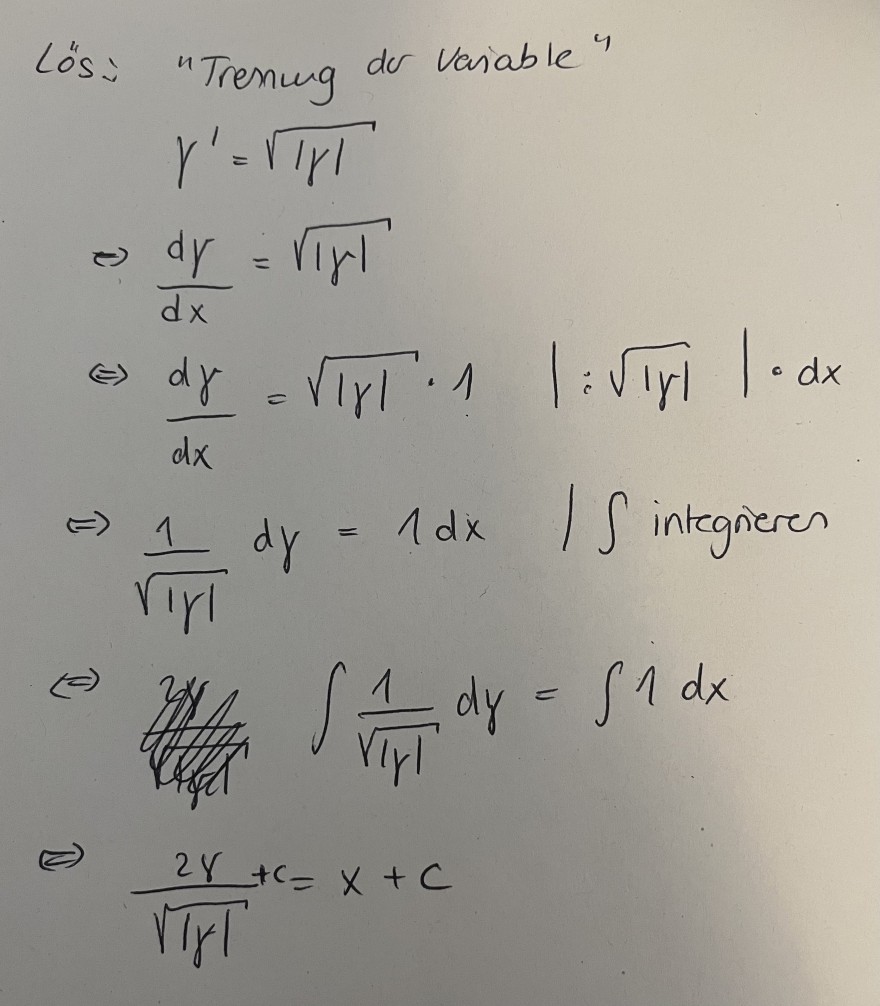 Lös: "Trennung der Variable"
y' = √|y|
⇔ dy/dx = √|y|
⇔ dy/dx = √|y| · 1 | : √|y| | · dx
⇔ 1/√|y| dy = 1 dx | ∫ integrieren
⇔ ∫ 1/√|y| dy = ∫ 1 dx
⇔ 2y/√|y| + c = x + c